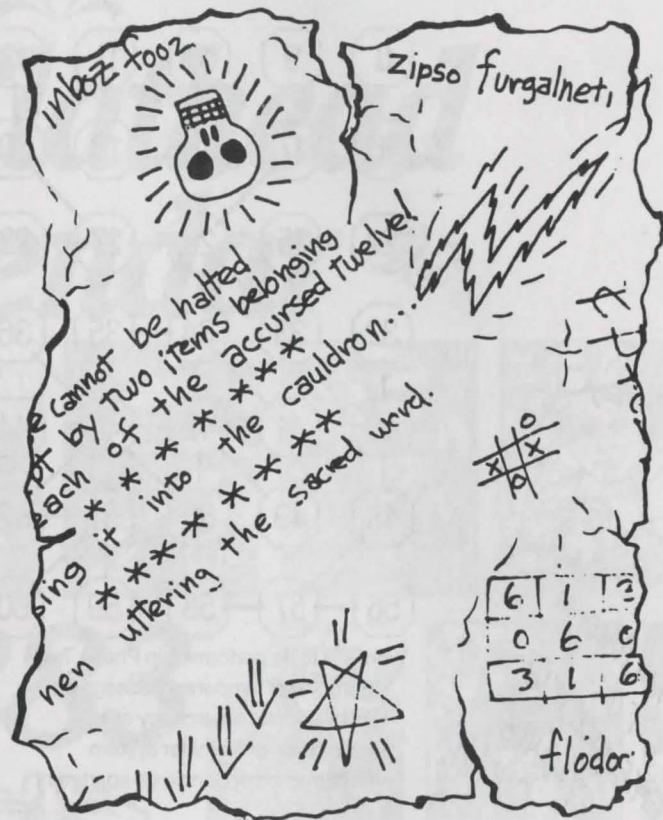 inboz fooz
zipso furgalneti
e cannot be halted
pt by two items belonging
each of the accursed twelve!
* * * * * * *
sing it into the cauldron...
* * * * * * * *
nen uttering the sacred word.
O
X X
O
6 1
0 6
3 1 6
flodor